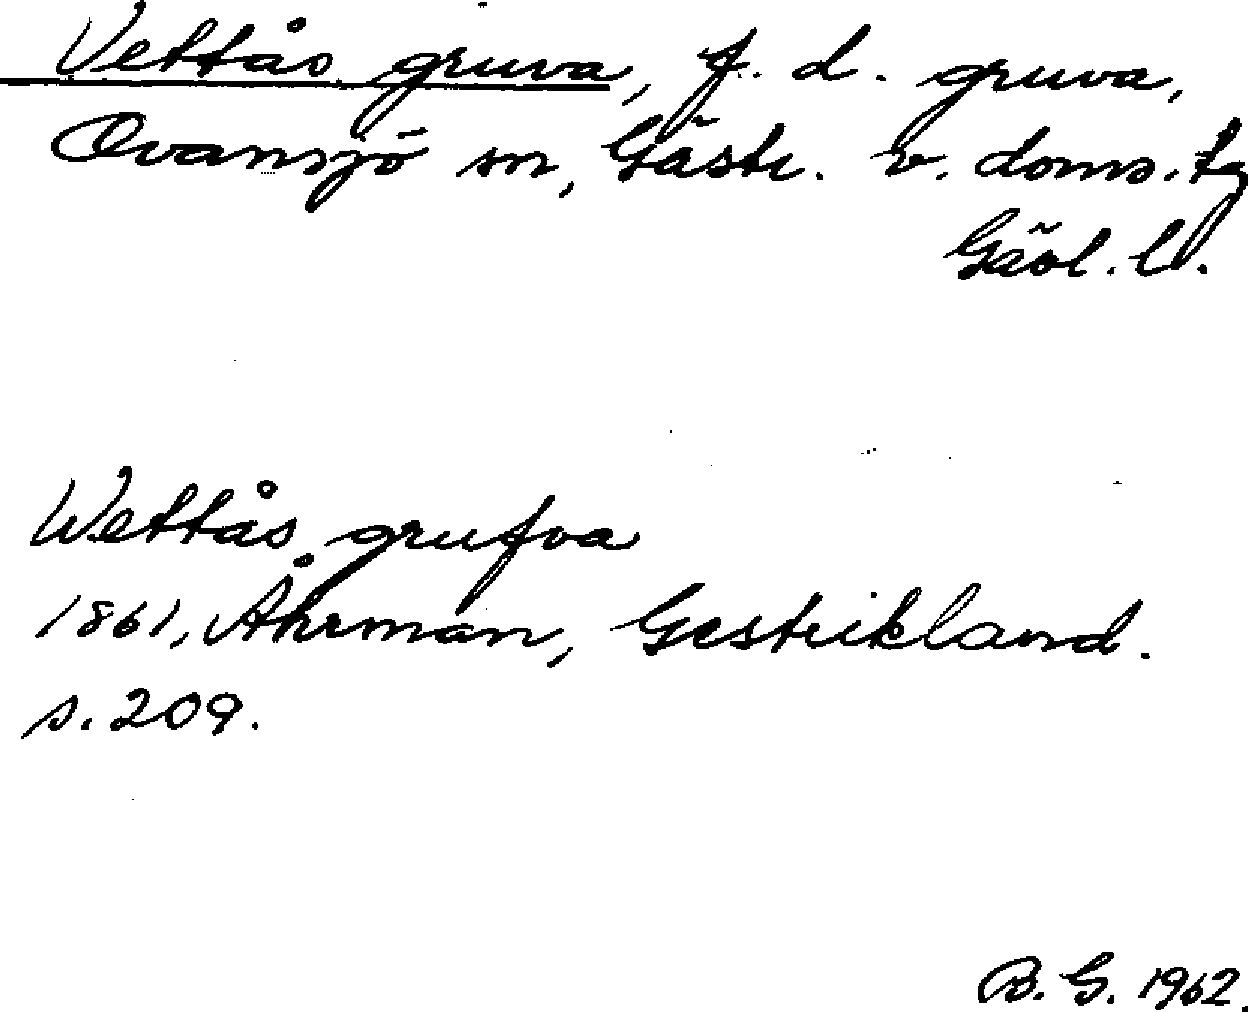 Vettås gruva, f. d. gruva,
Ovansjö sn, Gästr. v. doms. tg
Gävl. l.
Wettås grufva
1861, Åhrman, Gestrikland.
s. 209.
B. G. 1962.